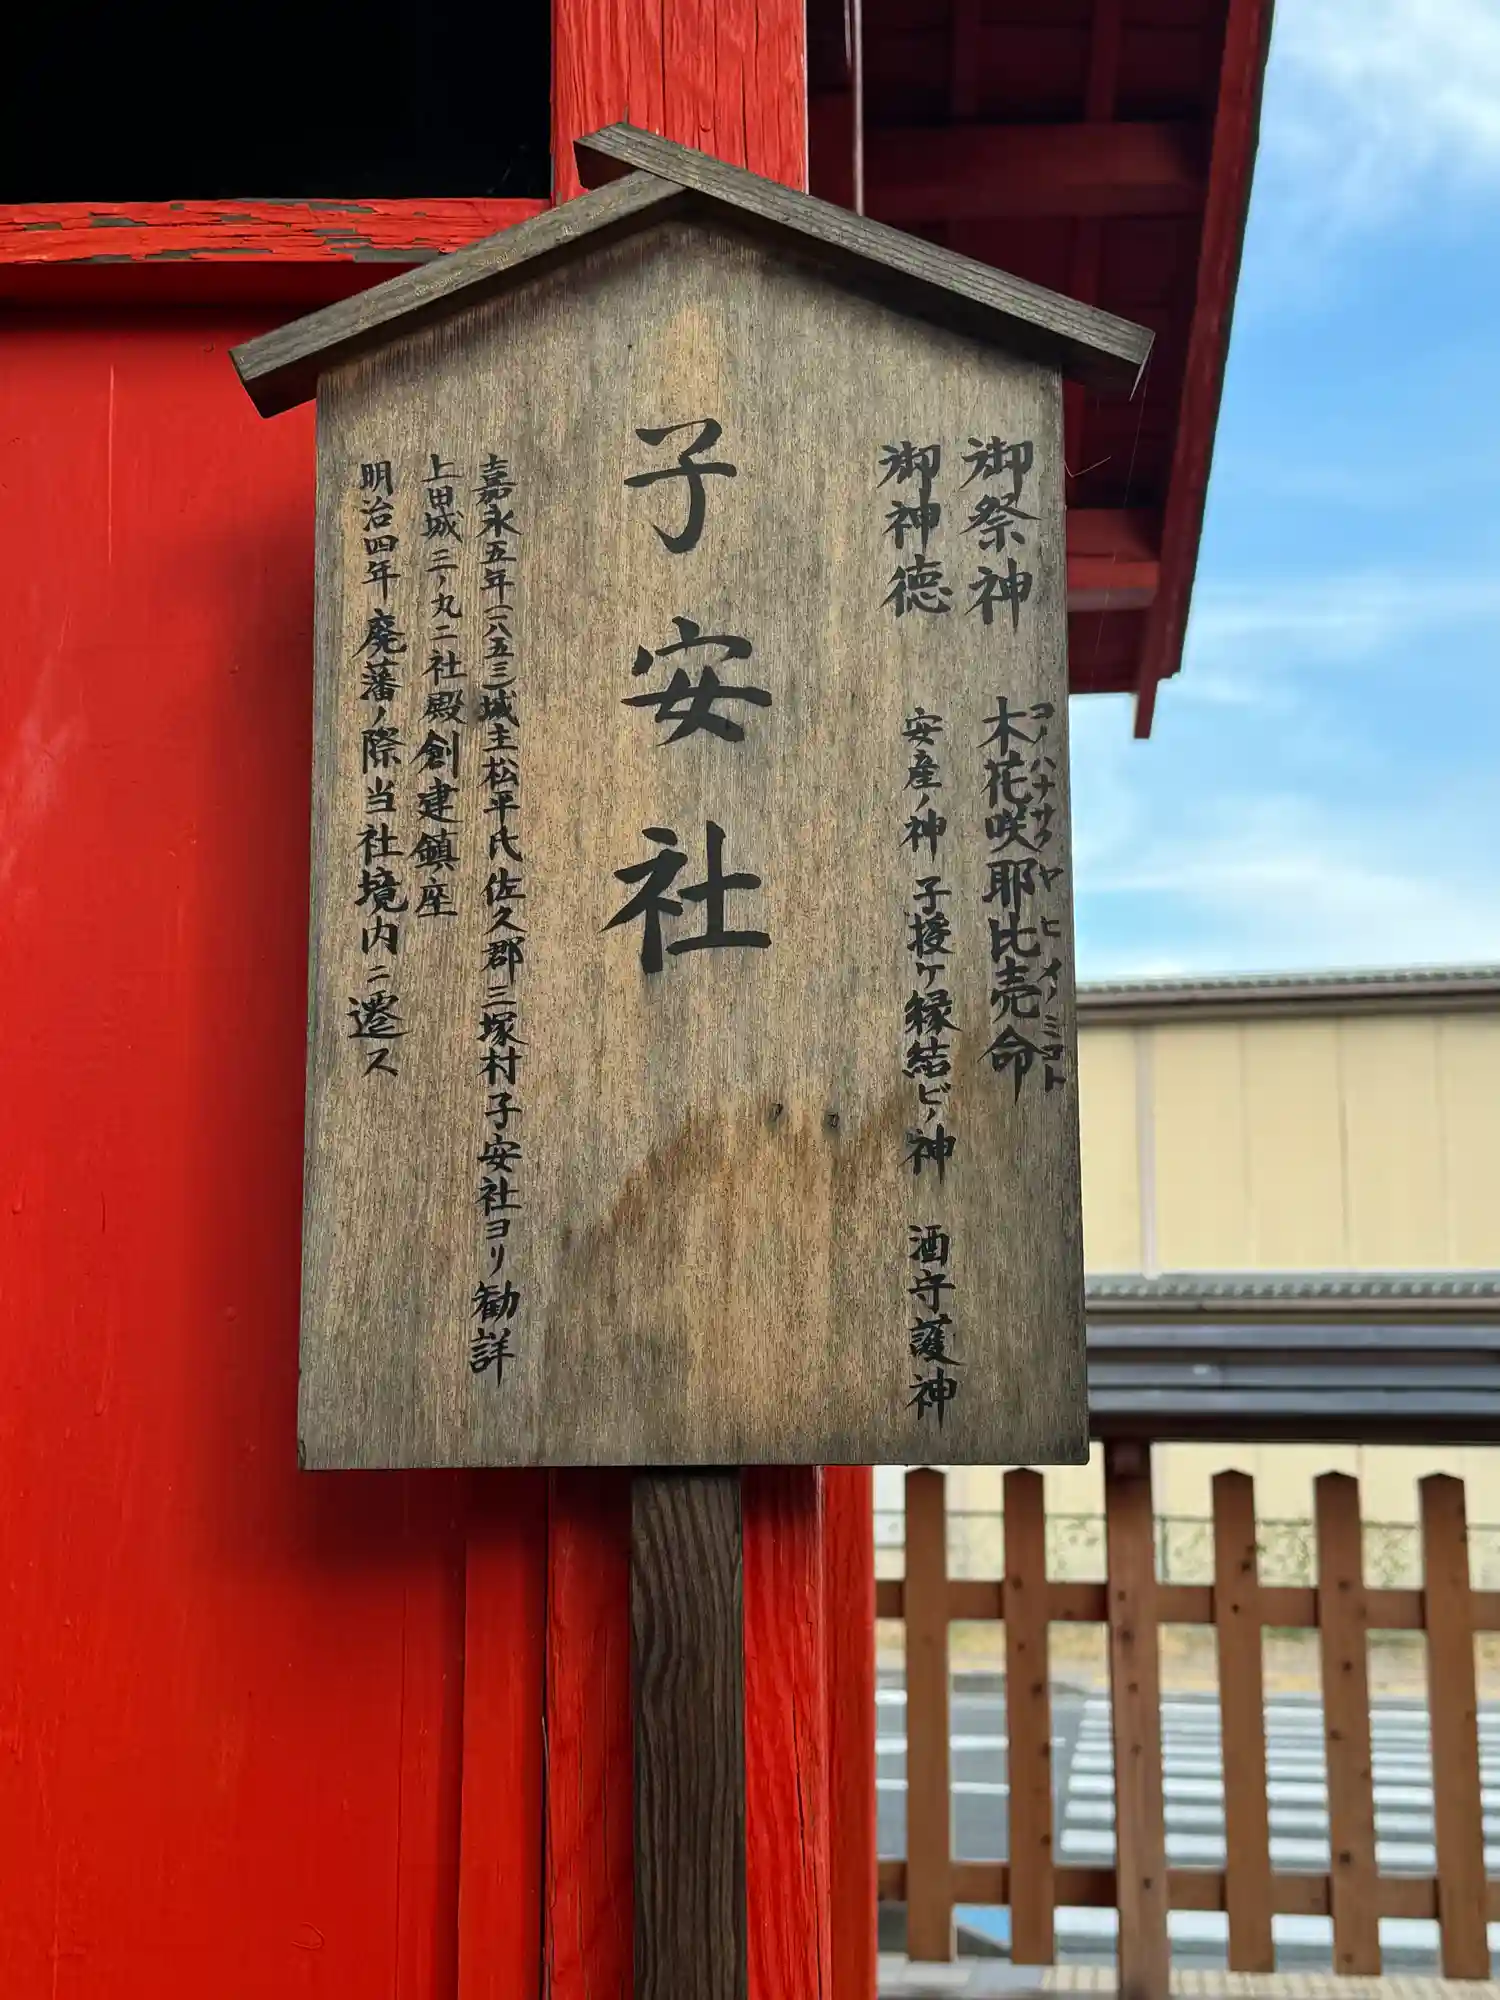 御祭神 木花咲耶比売命
コノハナサクヤヒメノミコト
御神徳 安産ノ神 子授ケ縁結ビノ神 酒守護神
子安社
嘉永五年(一八五三)城主松平氏佐久郡三塚村子安社ヨリ勧詳
上田城三ノ丸ニ社殿創建鎮座
明治四年廃藩ノ際当社境内ニ遷ス